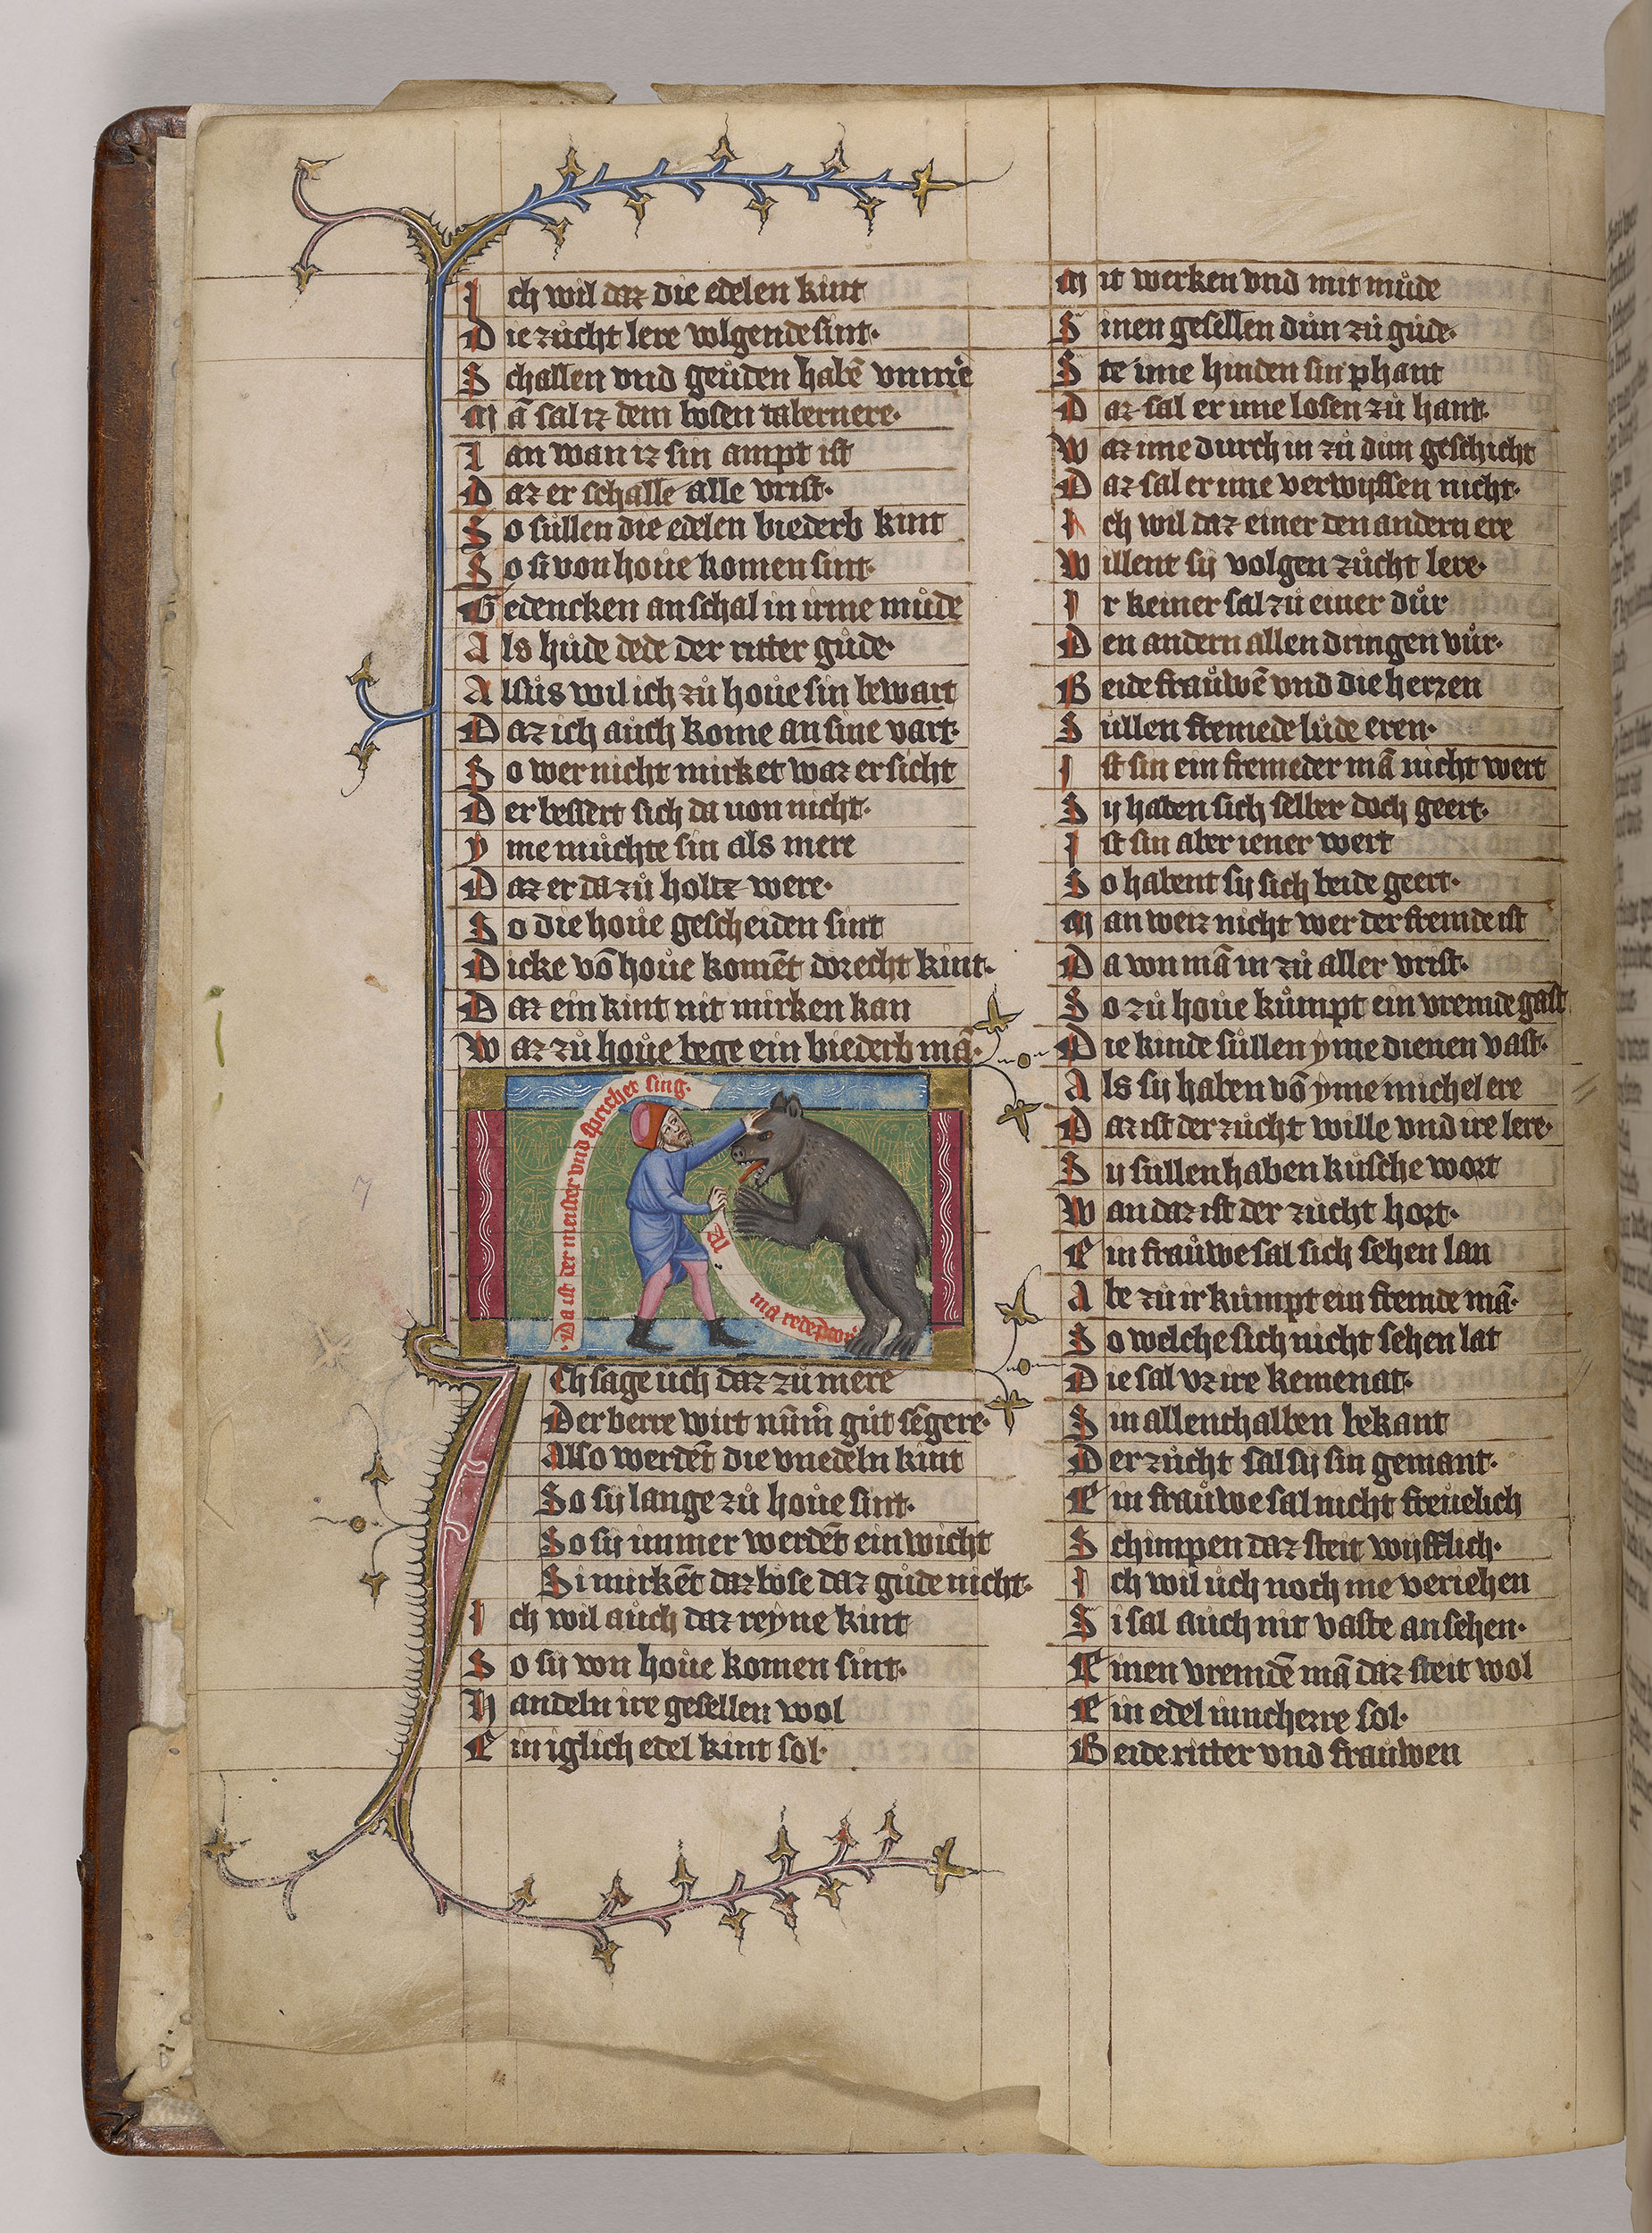 I ch wil daz die edelen kint
D ie zůcht lere volgende sint·
S challen vnd geůden habē vnmͤre
M ā sal iz dem bosen tabernere·
I an wan iz sin ampt ist
D az er schalle alle vrist·
S o sůllen die edelen biederb kint
S o si von houe komen sint·
G edencken an schal in irme můde
A ls hůde dede der ritter gůde·
A lsůs wil ich zů houe sin bewart
D az ich auch kome an sine vart·
S o wer nicht mirket waz er sicht
D er bessert sich da uon nicht·
Y me můchte sin als mere
D az er da zů holtz were·
S o die houe gescheiden sint
D icke vō houe komēt dorecht kint·
D az ein kint nit mirken kan
W az zů houe bege ein biederb mā·
·Da ist der meister vnd sprichet sing·
ma rede
Ch sage ůch daz zů mere
Der berre wirt nūm̄ gůt sēgere·
Also werdēt die vnedeln kint
So sij lange zů houe sint·
So sij immer werdēt ein wicht
Si mirkēt daz bose daz gůde nicht·
I ch wil auch daz reyne kint
S o sij von houe komen sint·
H andeln ire gesellen wol
E in iglich edel kint sol·
M it werken vnd mit můde
S inen gesellen důn zů gůde·
S te ime hinden sin phant
D az sal er ime losen zů hant·
W az ime durch in zů dun geschicht
D az sal er ime verwijssen nicht·
I ch wil daz einer den andern ere
W illent sij volgen zůcht lere·
I r keiner sal zů einer důr
D en andern allen dringen vůr·
B eide fraůwē vnd die herren
S ůllen fremede lůde eren·
I st sin ein fremeder mā nicht wert
S ij haben sich selber doch geert·
I st sin aber iener wert
S o habent sij sich beide geert·
M an weiz nicht wer der fremde ist
D a von mā in zů aller vrist·
S o zů houe kůmpt ein vremde gast
D ie kinde sůllen yme dienen vast·
A ls sij haben vō yme michel ere
D az ist der zůcht wille vnd ire lere·
S ij sůllen haben kůsche wort
W an daz ist der zůcht hort·
E in fraůwe sal sich sehen lan
A be zů ir kůmpt ein fremde mā·
S o welche sich nicht sehen lat
D ie sal vz ire kemenat·
S in allenthalben bekant
D er zůcht sal sij sin gemant·
E in fraůwe sal nicht freuelich
S chimpen daz steit wijfflich·
I ch wil ůch noch me veriehen
S i sal auch nit vaste an sehen·
E inen vremdē mā daz steit wol
E in edel iuncherre sol·
B eide ritter vnd fraůwen